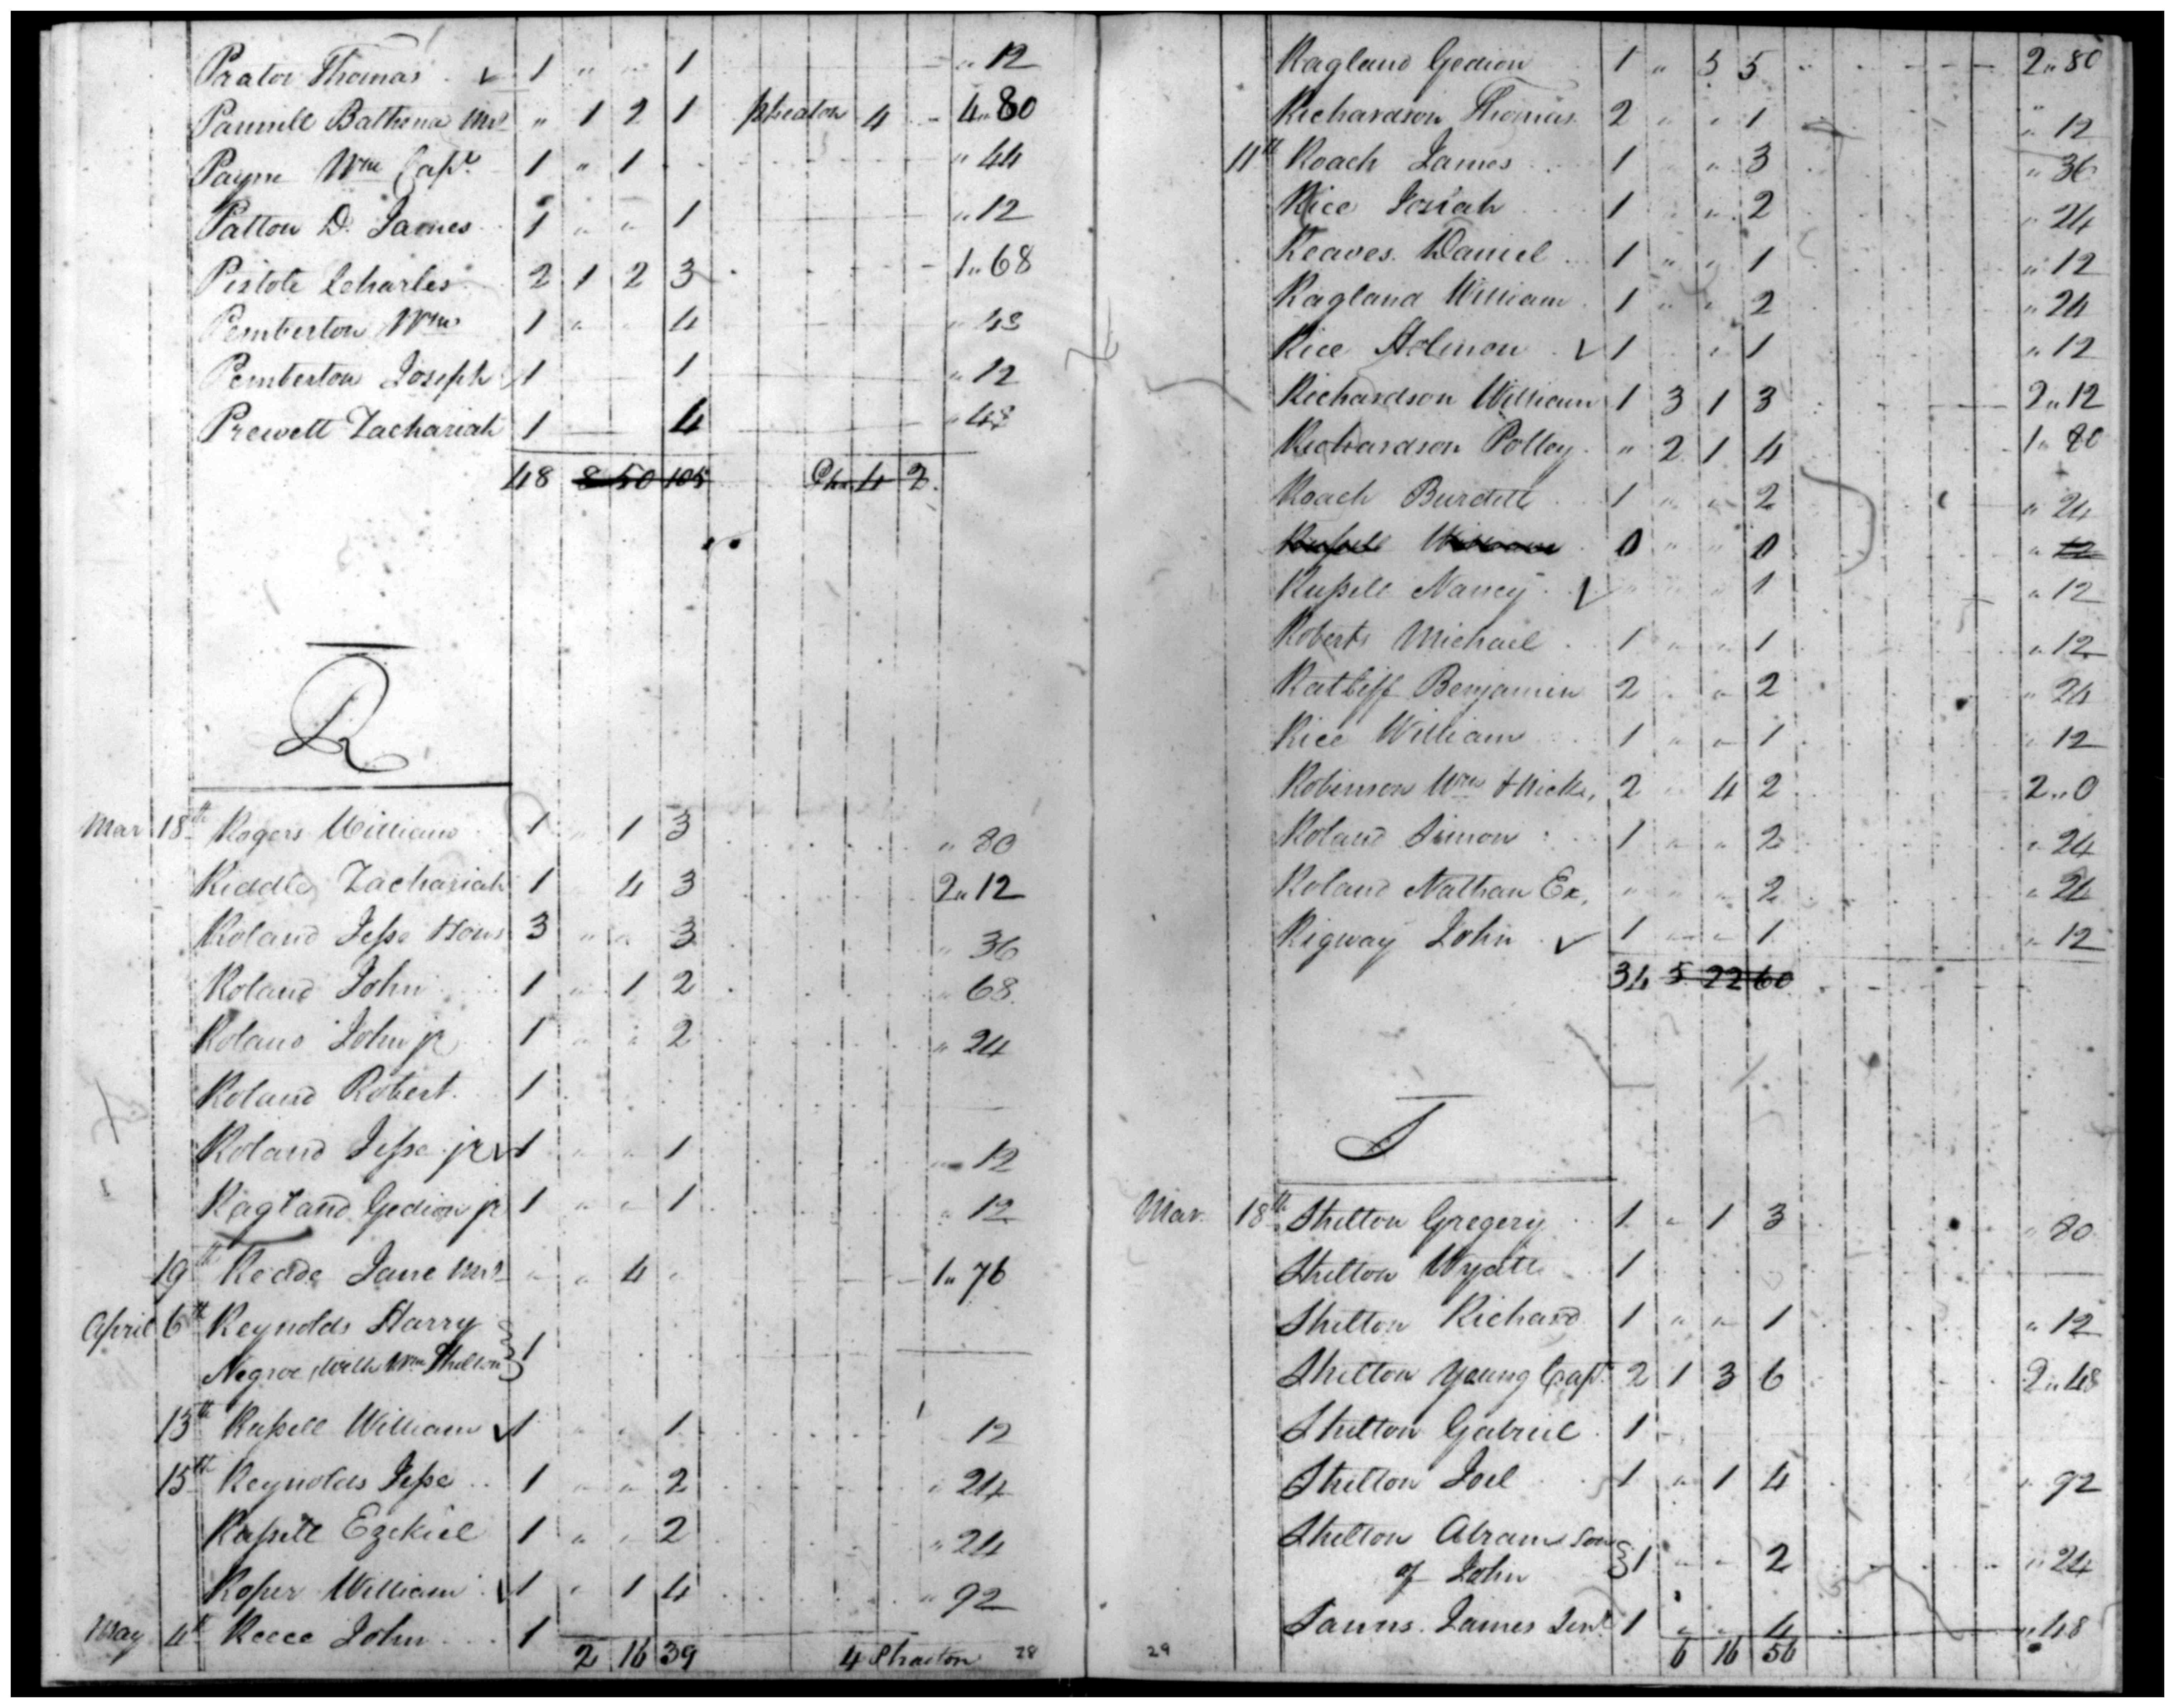 Prator Thomas ✓ 1 " " 1 " 12
Pannill Bathena Mrs " 1 2 1 pheaton 4 4 " 80
Payne Wm Capt 1 " 1 " 44
Patton D. James 1 " " 1 " 12
Pistole Charles 2 1 2 3 1 " 68
Pemberton Wm 1 " " 4 " 48
Pemberton Joseph ✓ 1 1 " 12
Prewett Zachariah 1 4 " 48
48 8 50 105 Pha 4 2.
R
Mar 18th Rogers William 1 " 1 3 " 80
Riddle Zachariah 1 4 3 2 " 12
Roland Jesse Hows 3 " " 3 " 36
Roland John 1 " 1 2 " 68
Roland John jr 1 " " 2 " 24
Roland Robert 1
Roland Jesse jr ✓ 1 " " 1 " 12
Ragland Gedion jr 1 " " 1 " 12
19th Reade Jane Mrs " " 4 " 1 " 76
April 6th Reynolds Harry
Negroe with Wm Shelton } 1
13th Russell William ✓ 1 " " 1 12
15th Reynolds Jesse 1 " " 2 " 24
Russell Ezekiel 1 " " 2 " 24
Roper William ✓ 1 " 1 4 " 92
May 4th Reece John 1
2 16 39 4 Phaeton 28
Ragland Gedion 1 " 5 5 2 " 80
Richardson Thomas 2 " " 1 " 12
11th Roach James 1 " " 3 " 36
Rice Josiah 1 " " 2 " 24
Reaves Daniel 1 " " 1 " 12
Ragland William 1 " " 2 " 24
Rice Holmon ✓ 1 " 1 " 12
Richardson William 1 3 1 3 2 " 12
Richardson Polley " 2 1 4 1 " 80
Roach Burdett 1 " " 2 " 24
Russell William 0 " " 0 " 12
Russell Nancy ✓ " " " 1 " 12
Roberts Michael 1 " " 1 " 12
Ratliff Benjamin 2 " " 2 " 24
Rice William 1 " " 1 " 12
Robinson Wm Hicks, 2 " 4 2 2 " 0
Roland Simon 1 " " 2 " 24
Roland Nathan Ex, " " " 2 " 24
Rigway John ✓ 1 " " 1 " 12
34 5 22 60
S
Mar 18th Shelton Gregery 1 " 1 3 " 80
Shelton Wyatt 1
Shelton Richard 1 " " 1 " 12
Shelton Young Capt. 2 1 3 6 2 " 48
Shelton Gabriel 1
Shelton Joel 1 " 1 4 " 92
Shelton Abram son
of John } 1 " " 2 " 24
James Senr 1 " " 4 " 48
29 6 16 56